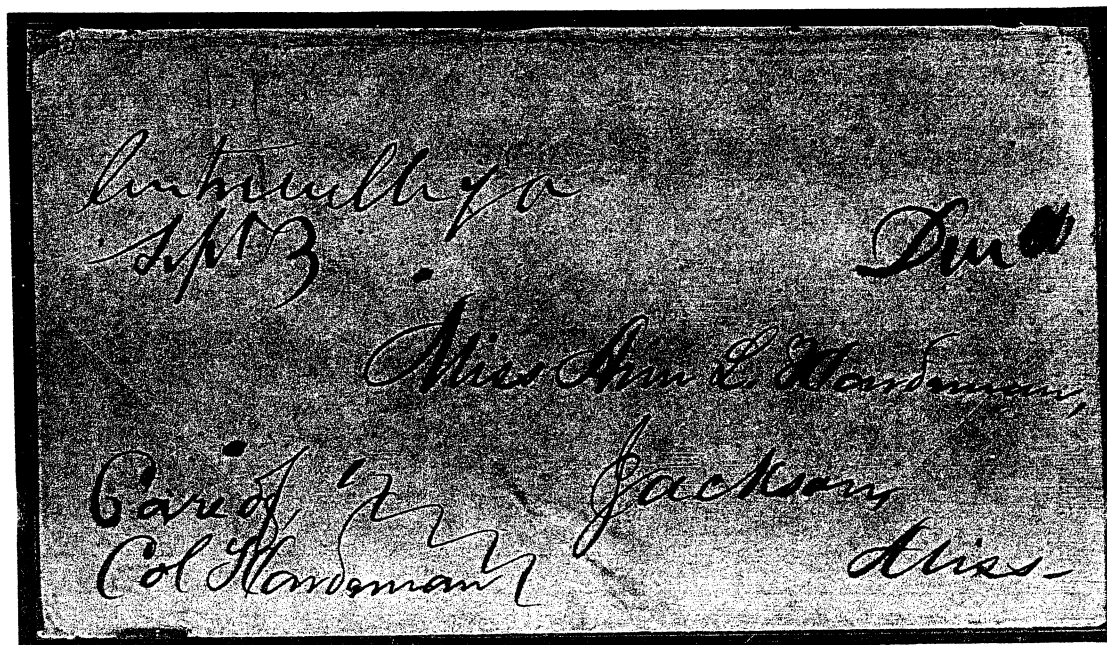 Sept 3
Due
Miss Ann L. Hardeman,
Jackson,
Miss-
Care of
Col Hardeman